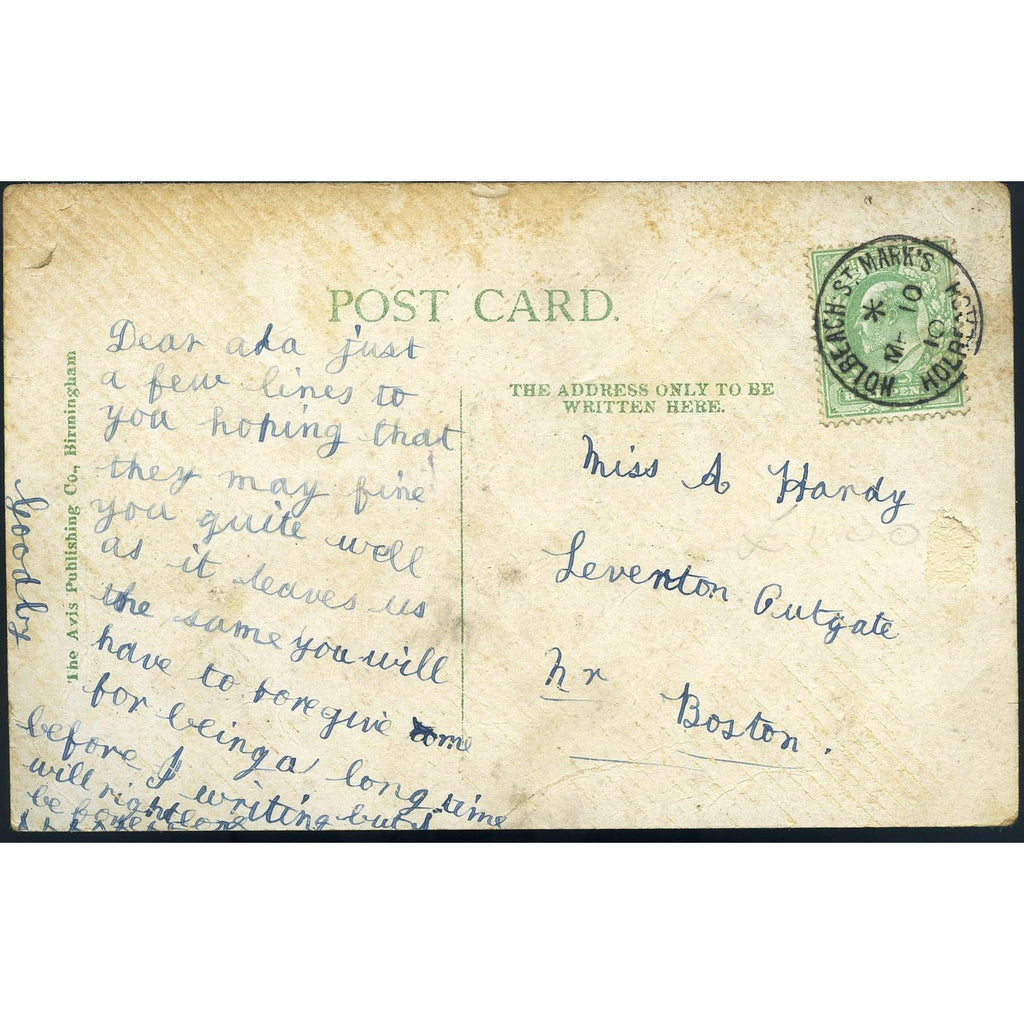 POST CARD.
The Avis Publishing Co., Birmingham
Dear ada just
a few lines to
you hoping that
they may fine
you quite well
as it leaves us
the same you will
have to foregive me
for being a long time
before I writing but I
will right
be
Goodby
THE ADDRESS ONLY TO BE
WRITTEN HERE.
Miss A Hardy
Leverton Outgate
Nr
Boston.
HOLBEACH-ST MARK'S HOLBEACH
*
10
10